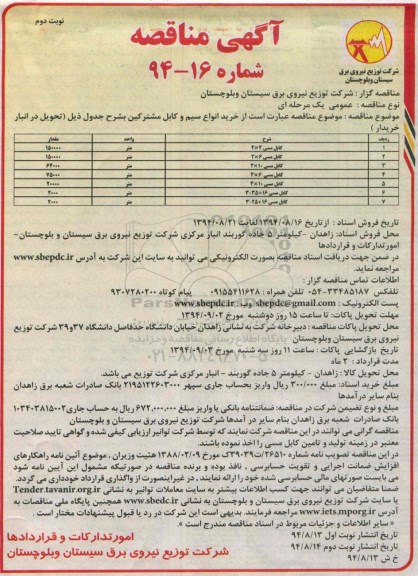 نوبت دوم
آگهی مناقصه
شماره ۱۶-۹۴
شرکت توزیع نیروی برق
سیستان وبلوچستان
مناقصه گزار : شرکت توزیع نیروی برق سیستان وبلوچستان
نوع مناقصه : عمومی یک مرحله ای
موضوع مناقصه : موضوع مناقصه عبارت است از خرید انواع سیم و کابل مشترکین بشرح جدول ذیل (تحویل در انبار
خریدار )
ردیف شرح واحد مقدار
۱ کابل مسی ۴×۲ متر ۱۵۰۰۰۰
۲ کابل مسی ۶×۲ متر ۱۵۰۰۰۰
۳ کابل مسی ۱۰×۲ متر ۶۴۰۰۰
۴ کابل مسی ۶×۴ متر ۷۵۰۰۰
۵ کابل مسی ۱۰×۴ متر ۲۰۰۰۰
۶ کابل مسی ۱۶+۳۵×۳ متر ۲۰۰۰
۷ کابل مسی ۱۶+۲۵×۳ متر ۲۰۰۰
تاریخ فروش اسناد : از تاریخ ۱۳۹۴/۰۸/۱۶ لغایت ۱۳۹۴/۰۸/۲۱
محل فروش اسناد: زاهدان -کیلومتر ۵ جاده گوربند انبار مرکزی شرکت توزیع نیروی برق سیستان و بلوچستان-
امورتدارکات و قراردادها
در ضمن جهت دریافت اسناد مناقصه بصورت الکترونیکی می توانید به سایت این شرکت به آدرس www.sbepdc.ir
مراجعه نماید.
اطلاعات تماس مناقصه گزار :
تلفکس ۳۳۴۸۵۱۸۷-۰۵۴ تلفن همراه : ۰۹۱۵۵۴۱۱۶۲۸ پیام کوتاه ۹۳۰۷۲۸۰۲۰۰
پست الکترونیک : sbepdc@gmail.com وب: www.sbepdc.ir
مهلت تحویل پاکات: تا ساعت ۱۵ روز دوشنبه مورخ ۱۳۹۴/۰۹/۰۲
محل تحویل پاکات مناقصه : دبیرخانه شرکت به نشانی زاهدان خیابان دانشگاه حدفاصل دانشگاه ۳۷و۳۹ شرکت توزیع
نیروی برق سیستان وبلوچستان
تاریخ بازگشایی پاکات : ساعت ۱۱ روز سه شنبه مورخ ۱۳۹۴/۰۹/۰۳
مدت قرارداد : ۲ ماه
محل تحویل کالا: زاهدان - کیلومتر ۵ جاده گوربند - انبار مرکزی شرکت توزیع می باشد.
مبلغ خرید اسناد: مبلغ ۳۰۰/۰۰۰ ریال واریز بحساب جاری سپهر ۲۱۹۵۱۲۲۶۰۳۰۰۰ بانک صادرات شعبه برق زاهدان
بنام سایر درآمدها
مبلغ و نوع تضمین شرکت در مناقصه: ضمانتنامه بانکی یا واریز مبلغ ۶۷۲,۰۰۰,۰۰۰ ریال به حساب جاری ۱۰۳۴۰۳۸۱۵۰۰۲
بانک صادرات شعبه برق زاهدان بنام سایر در آمدها شرکت توزیع نیروی برق سیستان و بلوچستان
مناقصه گرانی می توانند در این مناقصه شرکت نمایند که توسط شرکت توانیر ارزیابی کیفی شده و گواهی تایید صلاحیت
معتبر در زمینه تولید و تامین کابل مسی را اخذ نموده باشند.
در این مناقصه تصویب نامه شماره ۲۶۵۱۰/ت۳۹۰۳۹ک مورخ ۱۳۸۸/۰۲/۰۹ هئیت وزیران , موضوع آئین نامه راهکارهای
افزایش ضمانت اجرایی و تقویت حسابرسی , نافذ بوده و برنده مناقصه در صورتیکه مشمول این آیین نامه شود
می بایست صورتهای مالی حسابرسی شده خود را ارائه نمایند , در غیراینصورت از واگذاری قرارداد خودداری می گردد.
ضمنا متقاضیان می توانند جهت کسب اطلاعات بیشتر به سایت معاملات توانیر به نشانی Tender.tavanir.org.ir
یا سایت شرکت توزیع نیروی برق سیستان و بلوچستان به نشانی www.sbedc.ir همچنین پایگاه ملی مناقصات به
آدرس www.iets.mporg.ir مراجعه فرمایند. بدیهی است این شرکت در رد یا قبول پیشنهادات مختار است .
« سایر اطلاعات و جزئیات مربوط در اسناد مناقصه مندرج است »
تاریخ انتشار نوبت اول ۹۴/۸/۱۳
تاریخ انتشار نوبت دوم ۹۴/۸/۱۴
خ ش ۹۴/۸/۱۳
امورتدارکات و قراردادها
شرکت توزیع نیروی برق سیستان وبلوچستان